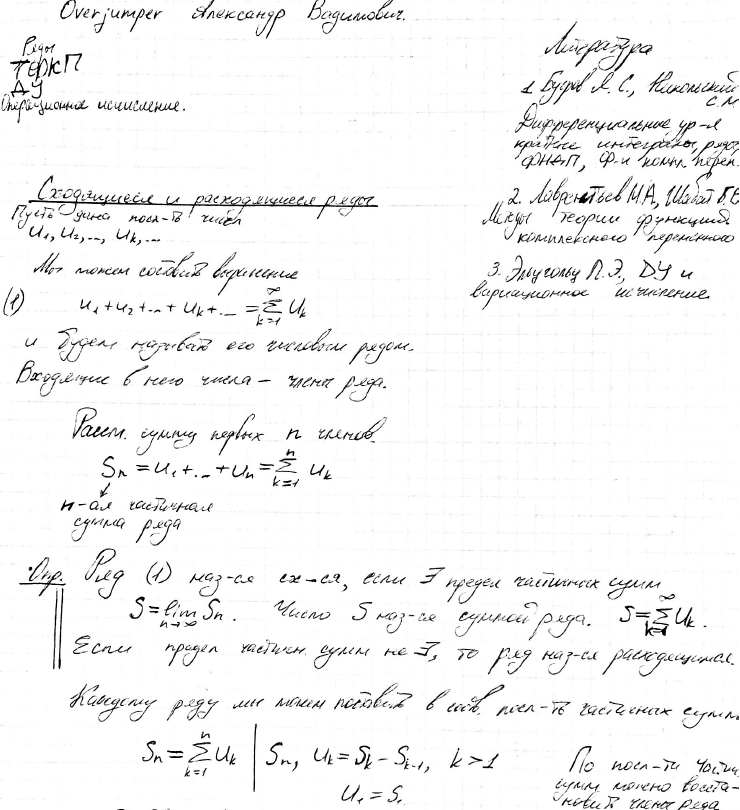 Overjumper Александр Вадимович.
Ряды
ТФКП
ДУ
Операционное исчисление.
Литература
1. Бугров Я. С., Никольский
С.М.
Дифференциальные ур-я
кратные интегралы, ряды,
ФНП, Ф-и компл. перен.
2. Лаврентьев М.А, Шабат Б.В
Методы теории функций
комплексного переменного
3. Эльсгольц Л.Э., ДУ и
вариационное исчисление
Сходящиеся и расходящиеся ряды
Пусть дана посл-ть чисел
u₁, u₂, ..., uₖ, ...
Мы можем составить выражение
(1) u₁ + u₂ + ... + uₖ + ... = ∑_{k=1}^{∞} uₖ
и будем называть его числовым рядом.
Входящие в него числа – члены ряда.
Рассм. сумму первых n членов.
Sₙ = u₁ + ... + uₙ = ∑_{k=1}^{n} uₖ
n-ая частичная
сумма ряда
Опр. Ряд (1) наз-ся сх-ся, если ∃ предел частичных сумм
S = lim_{n→∞} Sₙ. Число S наз-ся суммой ряда. S = ∑_{k=1}^{∞} uₖ.
Если предел частичн. сумм не ∃, то ряд наз-ся расходящимся.
Каждому ряду мы можем поставить в соотв. посл-ть частичных сумм
Sₙ = ∑_{k=1}^{n} uₖ | Sₙ, uₖ = Sₖ - Sₖ₋₁, k > 1
u₁ = S₁
По посл-ти части
сумм можно восста-
новить члены ряда